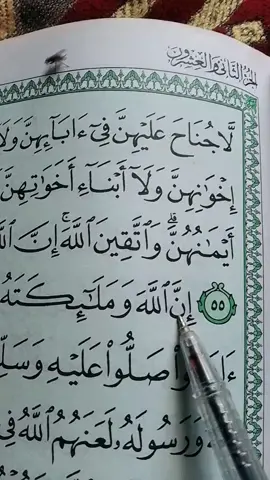 الجزء الثاني والعشرون
لَّا جُنَاحَ عَلَيْهِنَّ فِىٓ ءَابَآئِهِنَّ وَلَآ
إِخْوَٰنِهِنَّ وَلَآ أَبْنَآءِ أَخَوَٰتِهِنَّ
أَيْمَـٰنُهُنَّ ۗ وَٱتَّقِينَ ٱللَّهَ ۚ إِنَّ ٱللَّهَ
٥٥ إِنَّ ٱللَّهَ وَمَلَـٰٓئِكَتَهُۥ
صَلُّوا۟ عَلَيْهِ وَسَلِّمُوا۟
وَرَسُولَهُۥ لَعَنَهُمُ ٱللَّهُ فِى